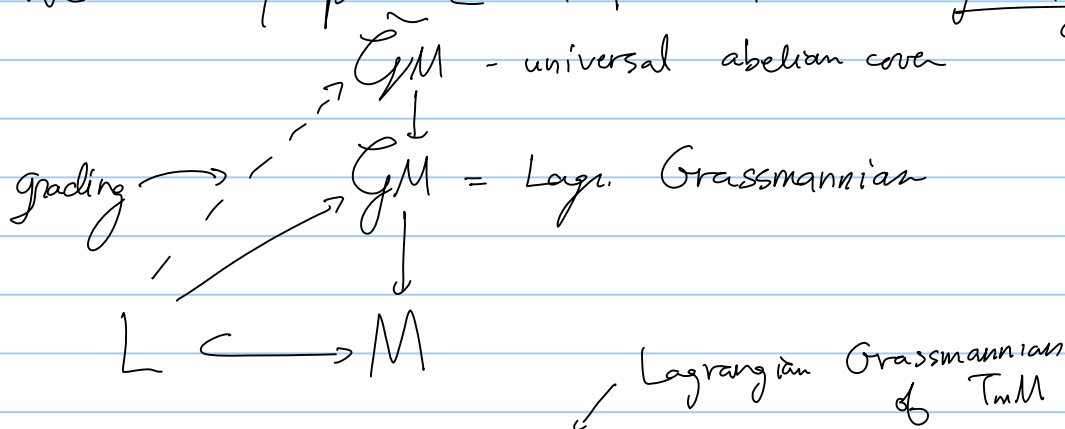 G̃M - universal abelian cover
grading
GM = Lagr. Grassmannian
L M
Lagrangian Grassmannian
of TmM